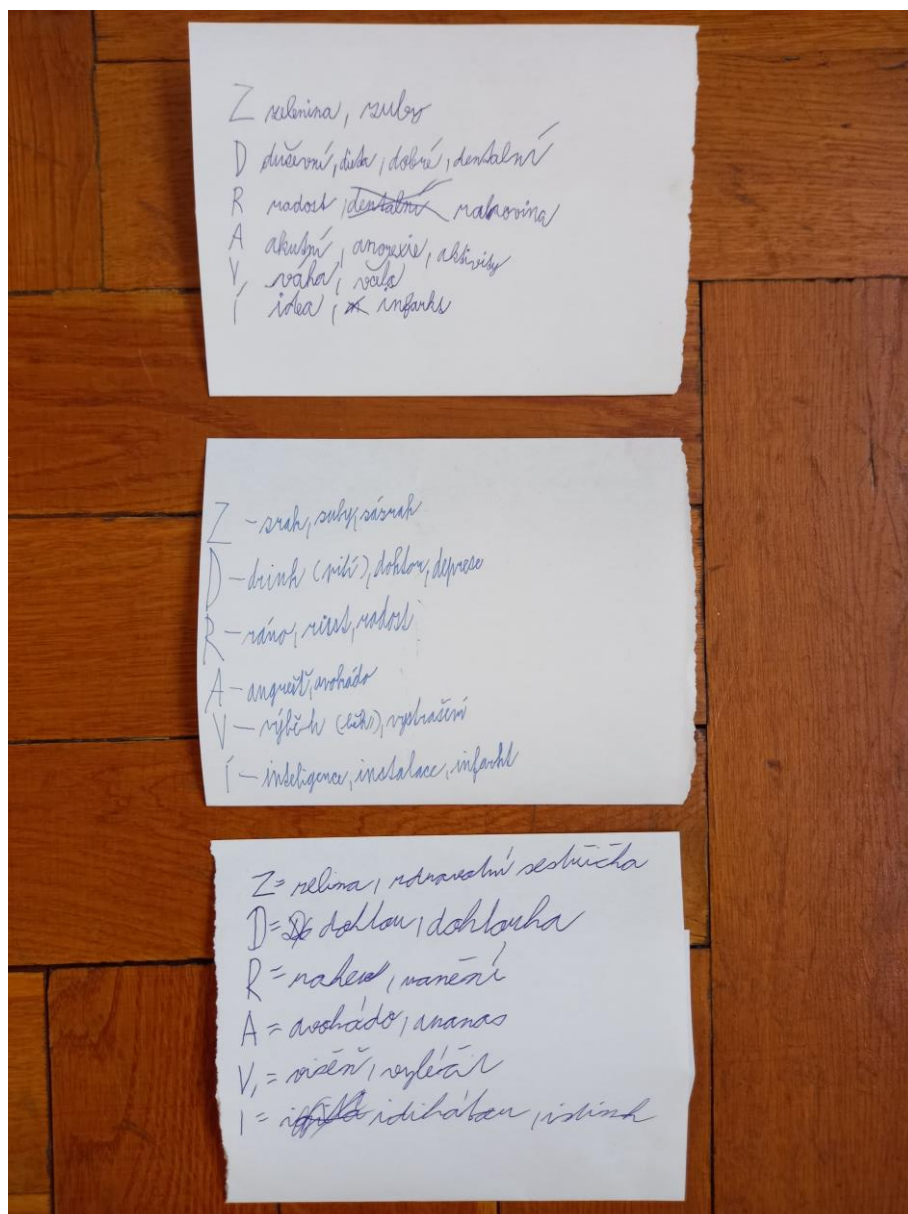 Z zelenina, zuby
D duševní, dieta, dobré, dentalní
R radost, dentalní rakovina
A akutní, anorexie, aktivity
V, váha, včela
Í idea, infarkt
Z – zrak, zuby, zázrak
D – drink (pití), doktor, deprese
R – ráno, růst, radost
A – angrešt, avokádo
V – výběh (běh), vystrašení
Í – inteligence, instalace, infarkt
Z = zelina, zdravotní sestřička
D = doktor, doktorka
R = raketa, ranění
A = avokádo, ananas
V, = vyléčit
I =